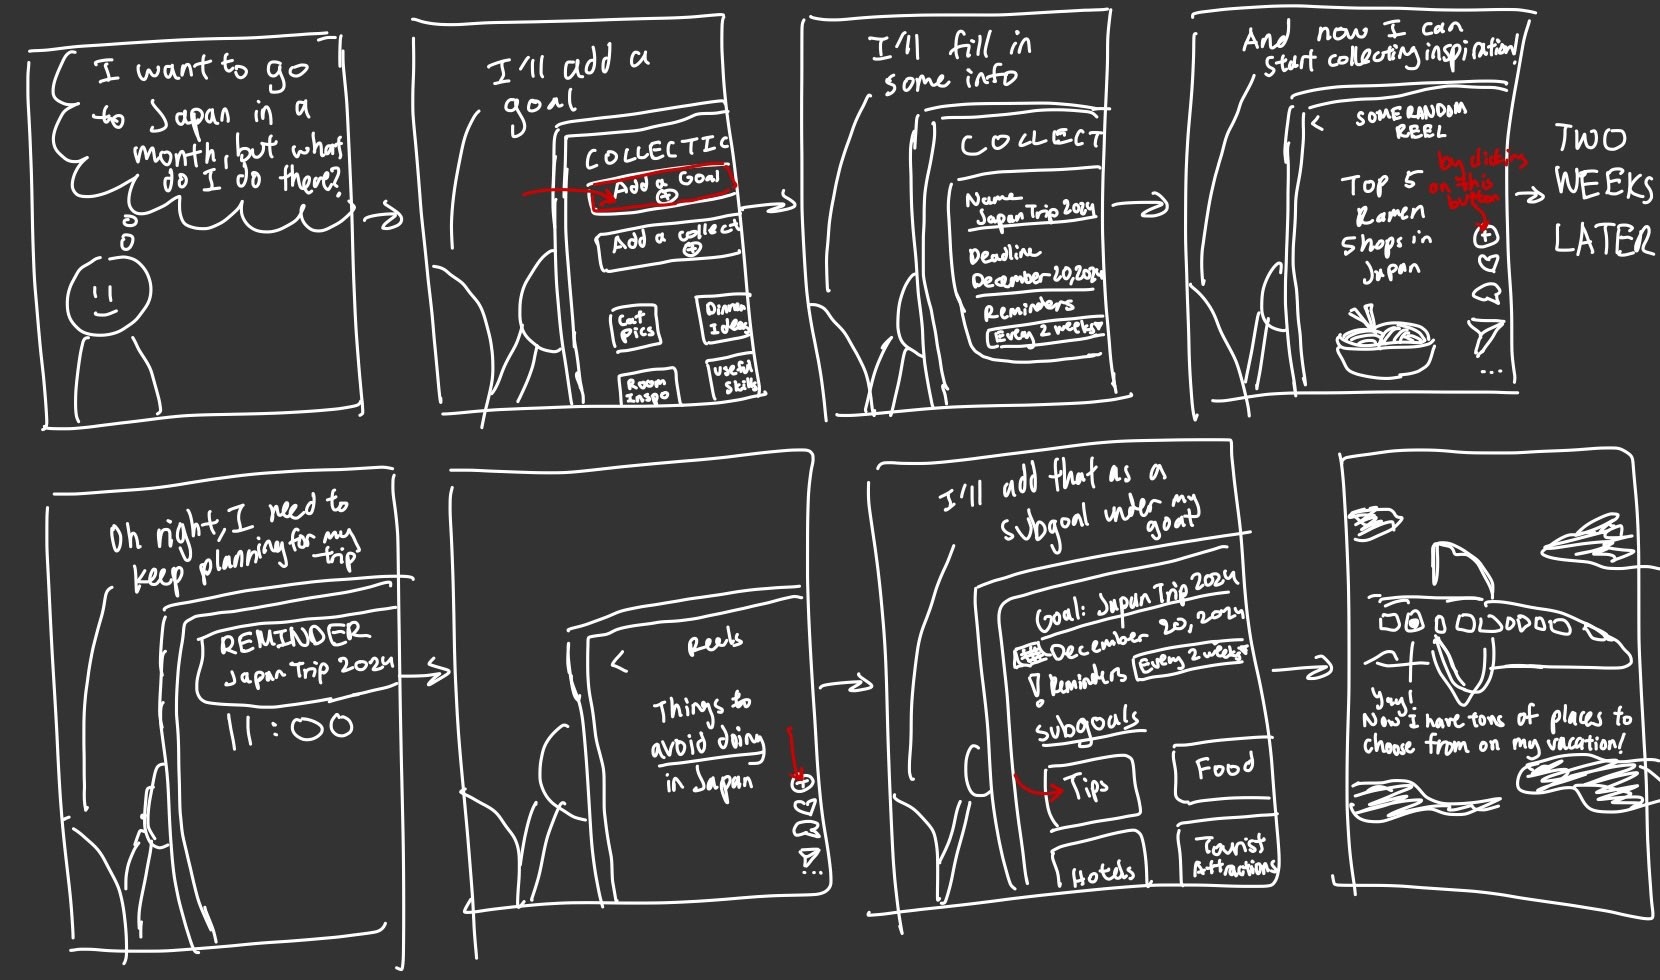 I want to go
to Japan in a
month, but what
do I do there?
I'll add a
goal
COLLECTIO
Add a Goal
Add a collect
Cat
Pics
Dinner
Ideas
Room
Inspo
Useful
Skills
I'll fill in
some info
COLLECT
Name
Japan Trip 2024
Deadline
December 20, 2024
Reminders
Every 2 weeks
And now I can
start collecting inspiration!
<
SOME RANDOM
REEL
by clicking
on this
button
Top 5
Ramen
Shops in
Japan
...
TWO
WEEKS
LATER
Oh right, I need to
keep planning for my
trip
REMINDER
Japan Trip 2024
11:00
<
Reels
Things to
avoid doing
in Japan
...
I'll add that as a
subgoal under my
goal
Goal: Japan Trip 2024
December 20, 2024
! Reminders Every 2 weeks
subgoals
Tips
Food
Hotels
Tourist
Attractions
Yay!
Now I have tons of places to
choose from on my vacation!